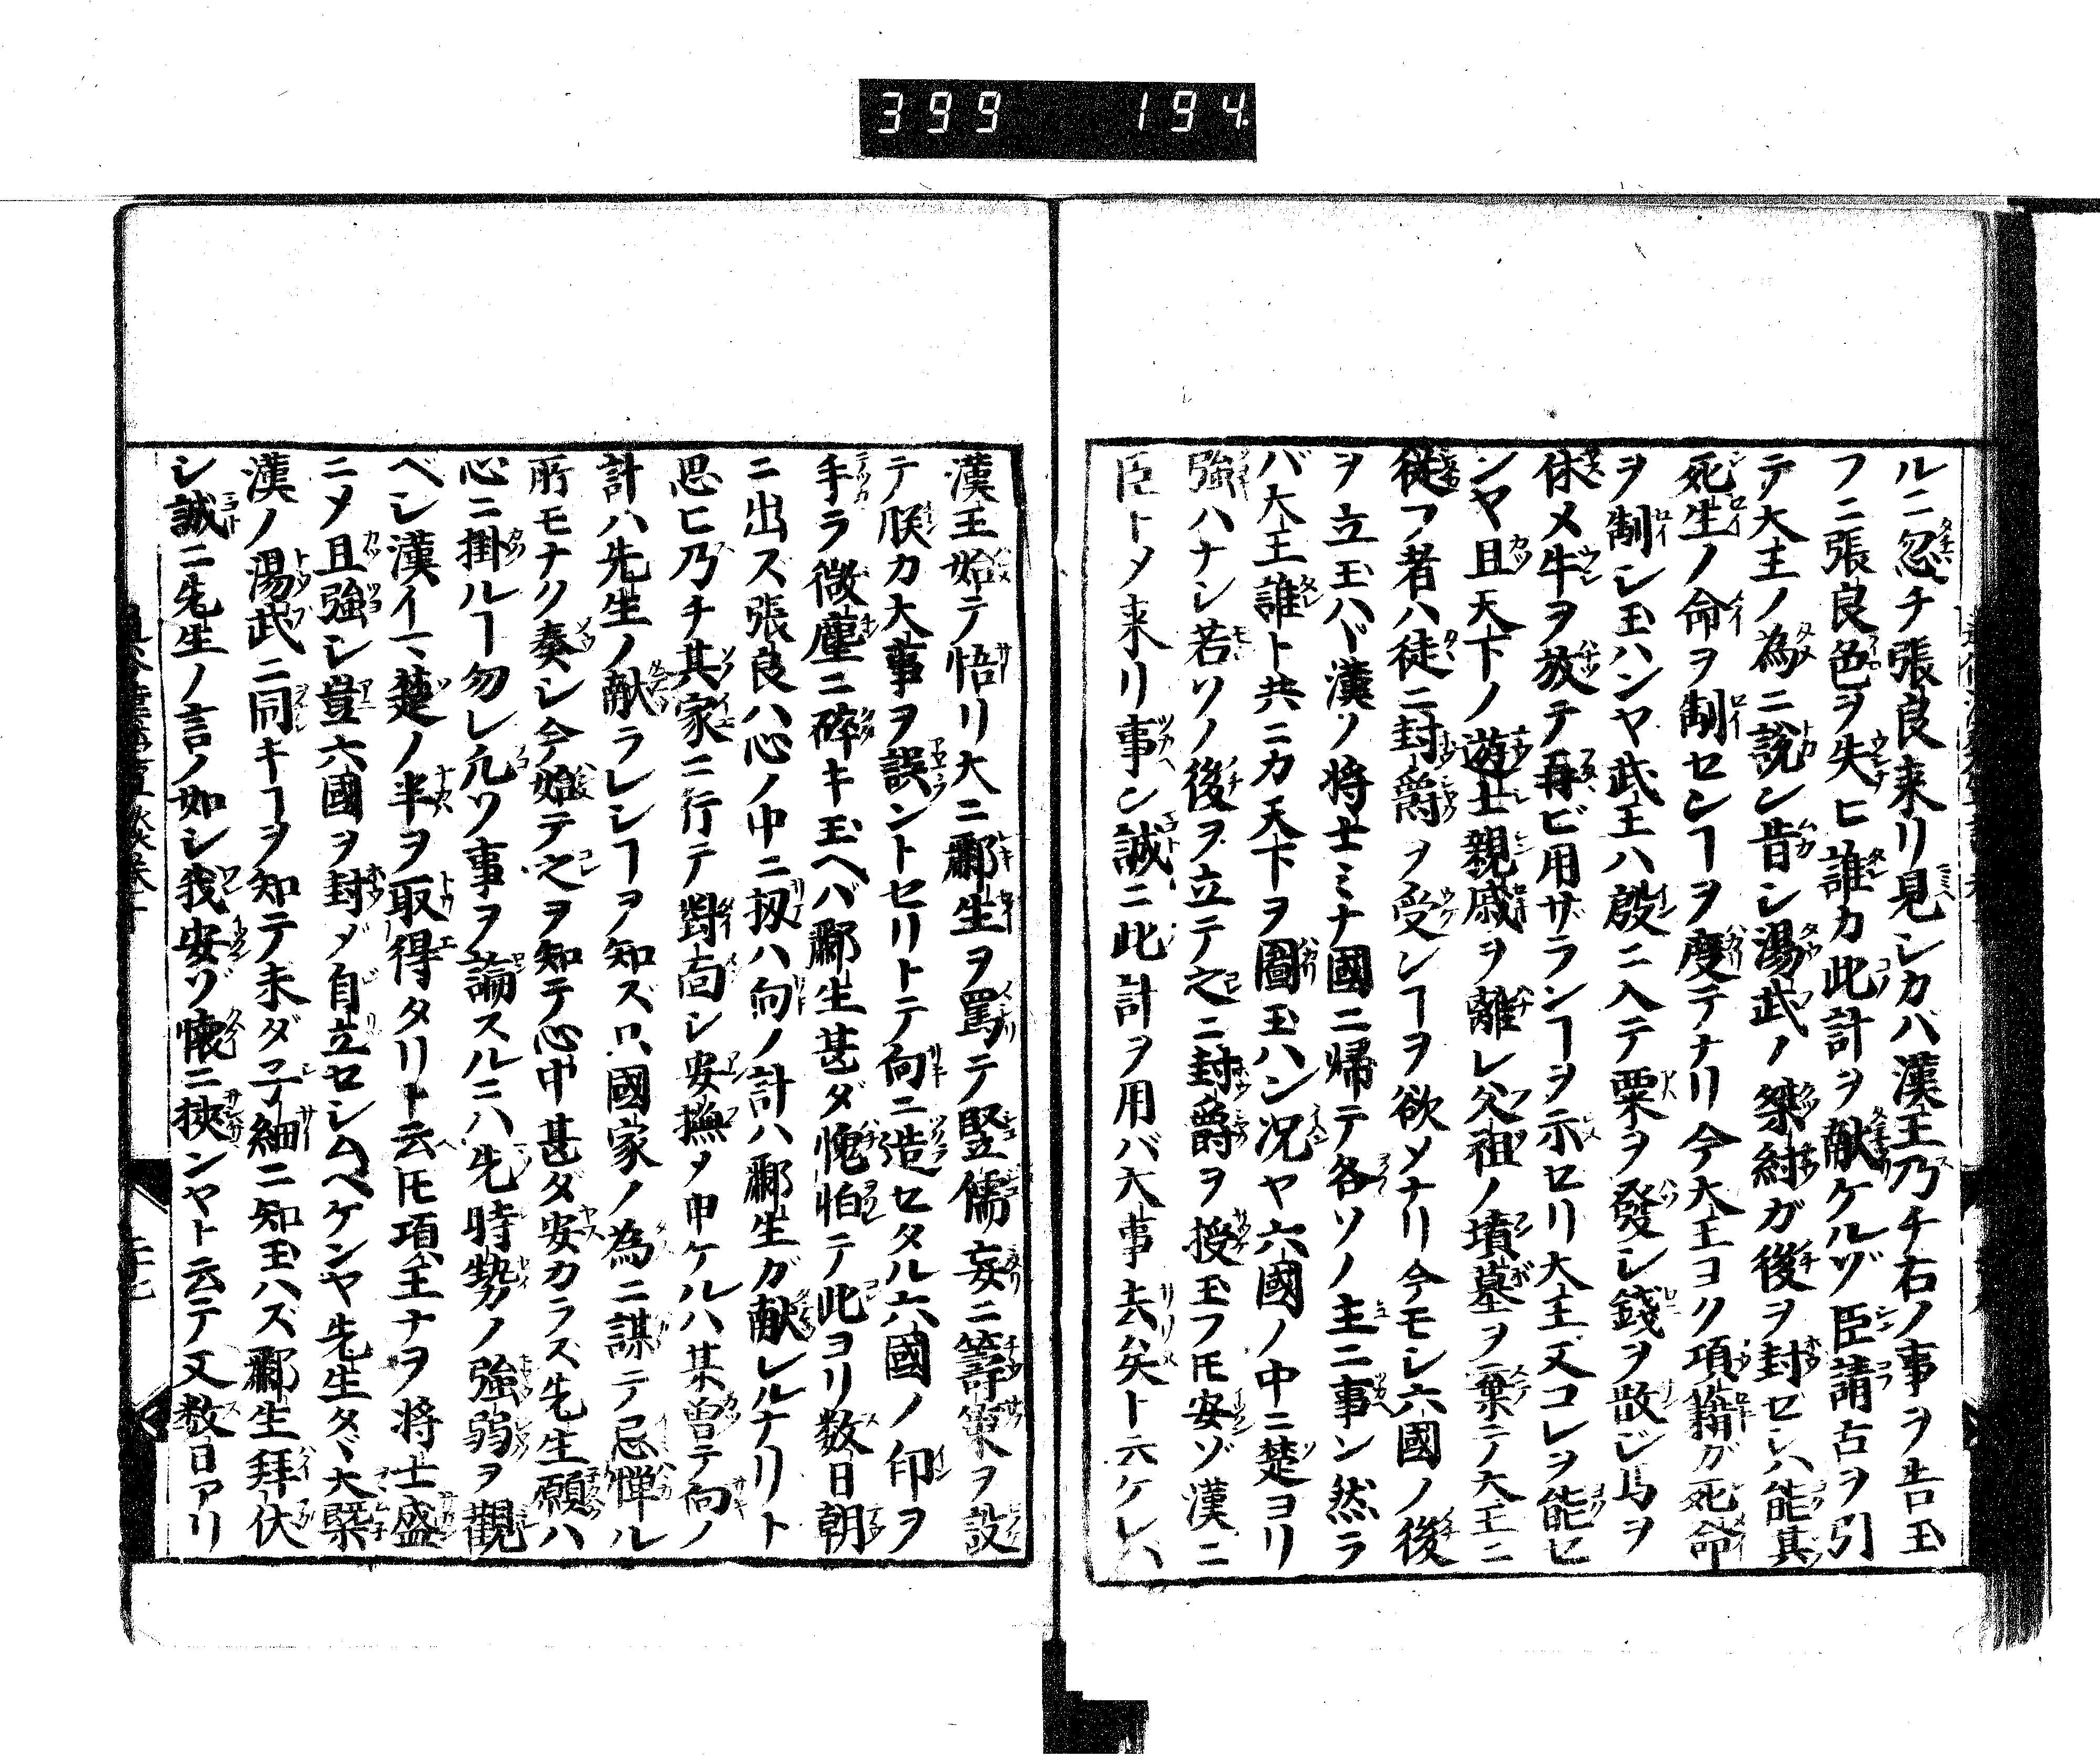 399 194
ルニ忽チ張良来リ見シカバ漢王乃チ右ノ事ヲ告玉
フニ張良色ヲ失ヒ誰カ此計ヲ献ケルゾ臣請古ヲ引
テ大王ノ為ニ説ン昔シ湯武ノ桀紂ガ後ヲ封ゼシハ能其
死生ノ命ヲ制センヿヲ度テナリ今大王ヨク項籍ガ死命
ヲ制シ玉ハンヤ武王ハ殷ニ入テ粟ヲ發シ錢ヲ散ジ馬ヲ
休メ牛ヲ放テ再ビ用ザランヿヲ示セリ大王又コレヲ能セ
ンヤ且天下ノ遊士親戚ヲ離レ父祖ノ墳墓ヲ棄テ大王ニ
従フ者ハ徒ニ封爵ヲ受ンヿヲ欲メナリ今モシ六國ノ後
ヲ立玉ハヾ漢ノ将士ミナ國ニ帰テ各ソノ主ニ事ン然ラ
バ大王誰ト共ニカ天下ヲ圖玉ハン况ヤ六國ノ中ニ楚ヨリ
強ハナシ若ソノ後ヲ立テ之ニ封爵ヲ授玉フ𪜈安ゾ漢ニ
臣トメ来リ事ン誠ニ此計ヲ用バ大事去ント云ケレバ
漢王始テ悟リ大ニ酈生ヲ罵テ豎儒妄ニ籌策ヲ設
テ朕カ大事ヲ誤ントセリトテ向ニ造セタル六國ノ印ヲ
手ラ微塵ニ碎キ玉ヘバ酈生甚ダ愧怕テ此ヨリ数日朝
ニ出ス張良ハ心ノ中ニ扨ハ向ノ計ハ酈生ガ献レルナリト
思ヒ乃チ其家ニ行テ對面シ安撫メ申ケルハ某曽テ向ノ
計ハ先生ノ献ラレシヿヲ知ズ只國家ノ為ニ謀テ忌憚ル
所モナク奏シ今始テ之ヲ知テ心中甚ダ安カラス先生願ハ
心ニ掛ルヿ勿レ凢ソ事ヲ論スルニハ先時勢ノ強弱ヲ觀
ベシ漢イマ楚ノ半ヲ取得タリト云𪜈項王ナヲ将士盛
ニメ且強シ豈六國ヲ封ジ自立セシムベケンヤ先生タヾ大槩
漢ノ湯武ニ同キヿヲ知テ未ダ子細ニ知玉ハズ酈生拜伏
シ誠ニ先生ノ言ノ如シ我安ゾ懐ニ挾ンヤト云テ又数日アリ